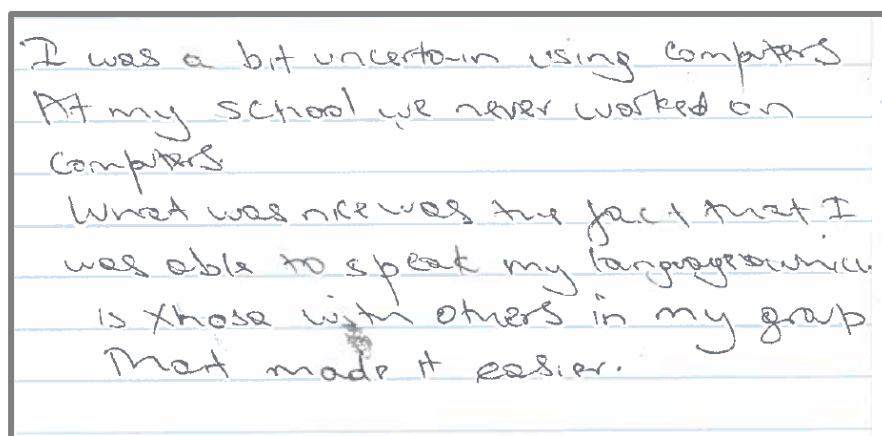 I was a bit uncertain using computers
At my school we never worked on
computers.
What was nice was the fact that I
was able to speak my language which
is Xhosa with others in my group
That made it easier.